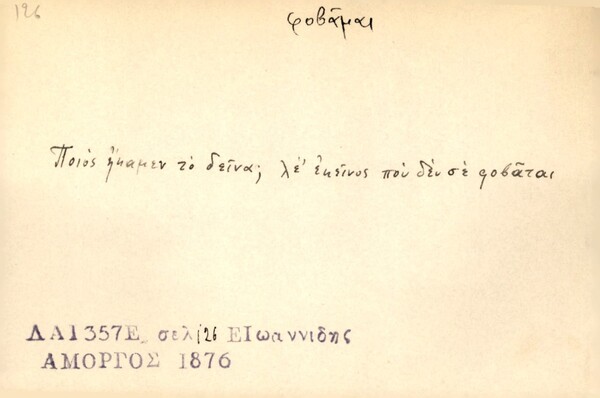 126
φοβᾶμαι
Ποιὸς ἤκαμεν τὸ δεῖνα; λέ' ἐκεῖνος ποὺ δὲν σὲ φοβᾶται
ΛΑ1357Ε, σελ 126 ΕΙωαννιδης
ΑΜΟΡΓΟΣ 1876